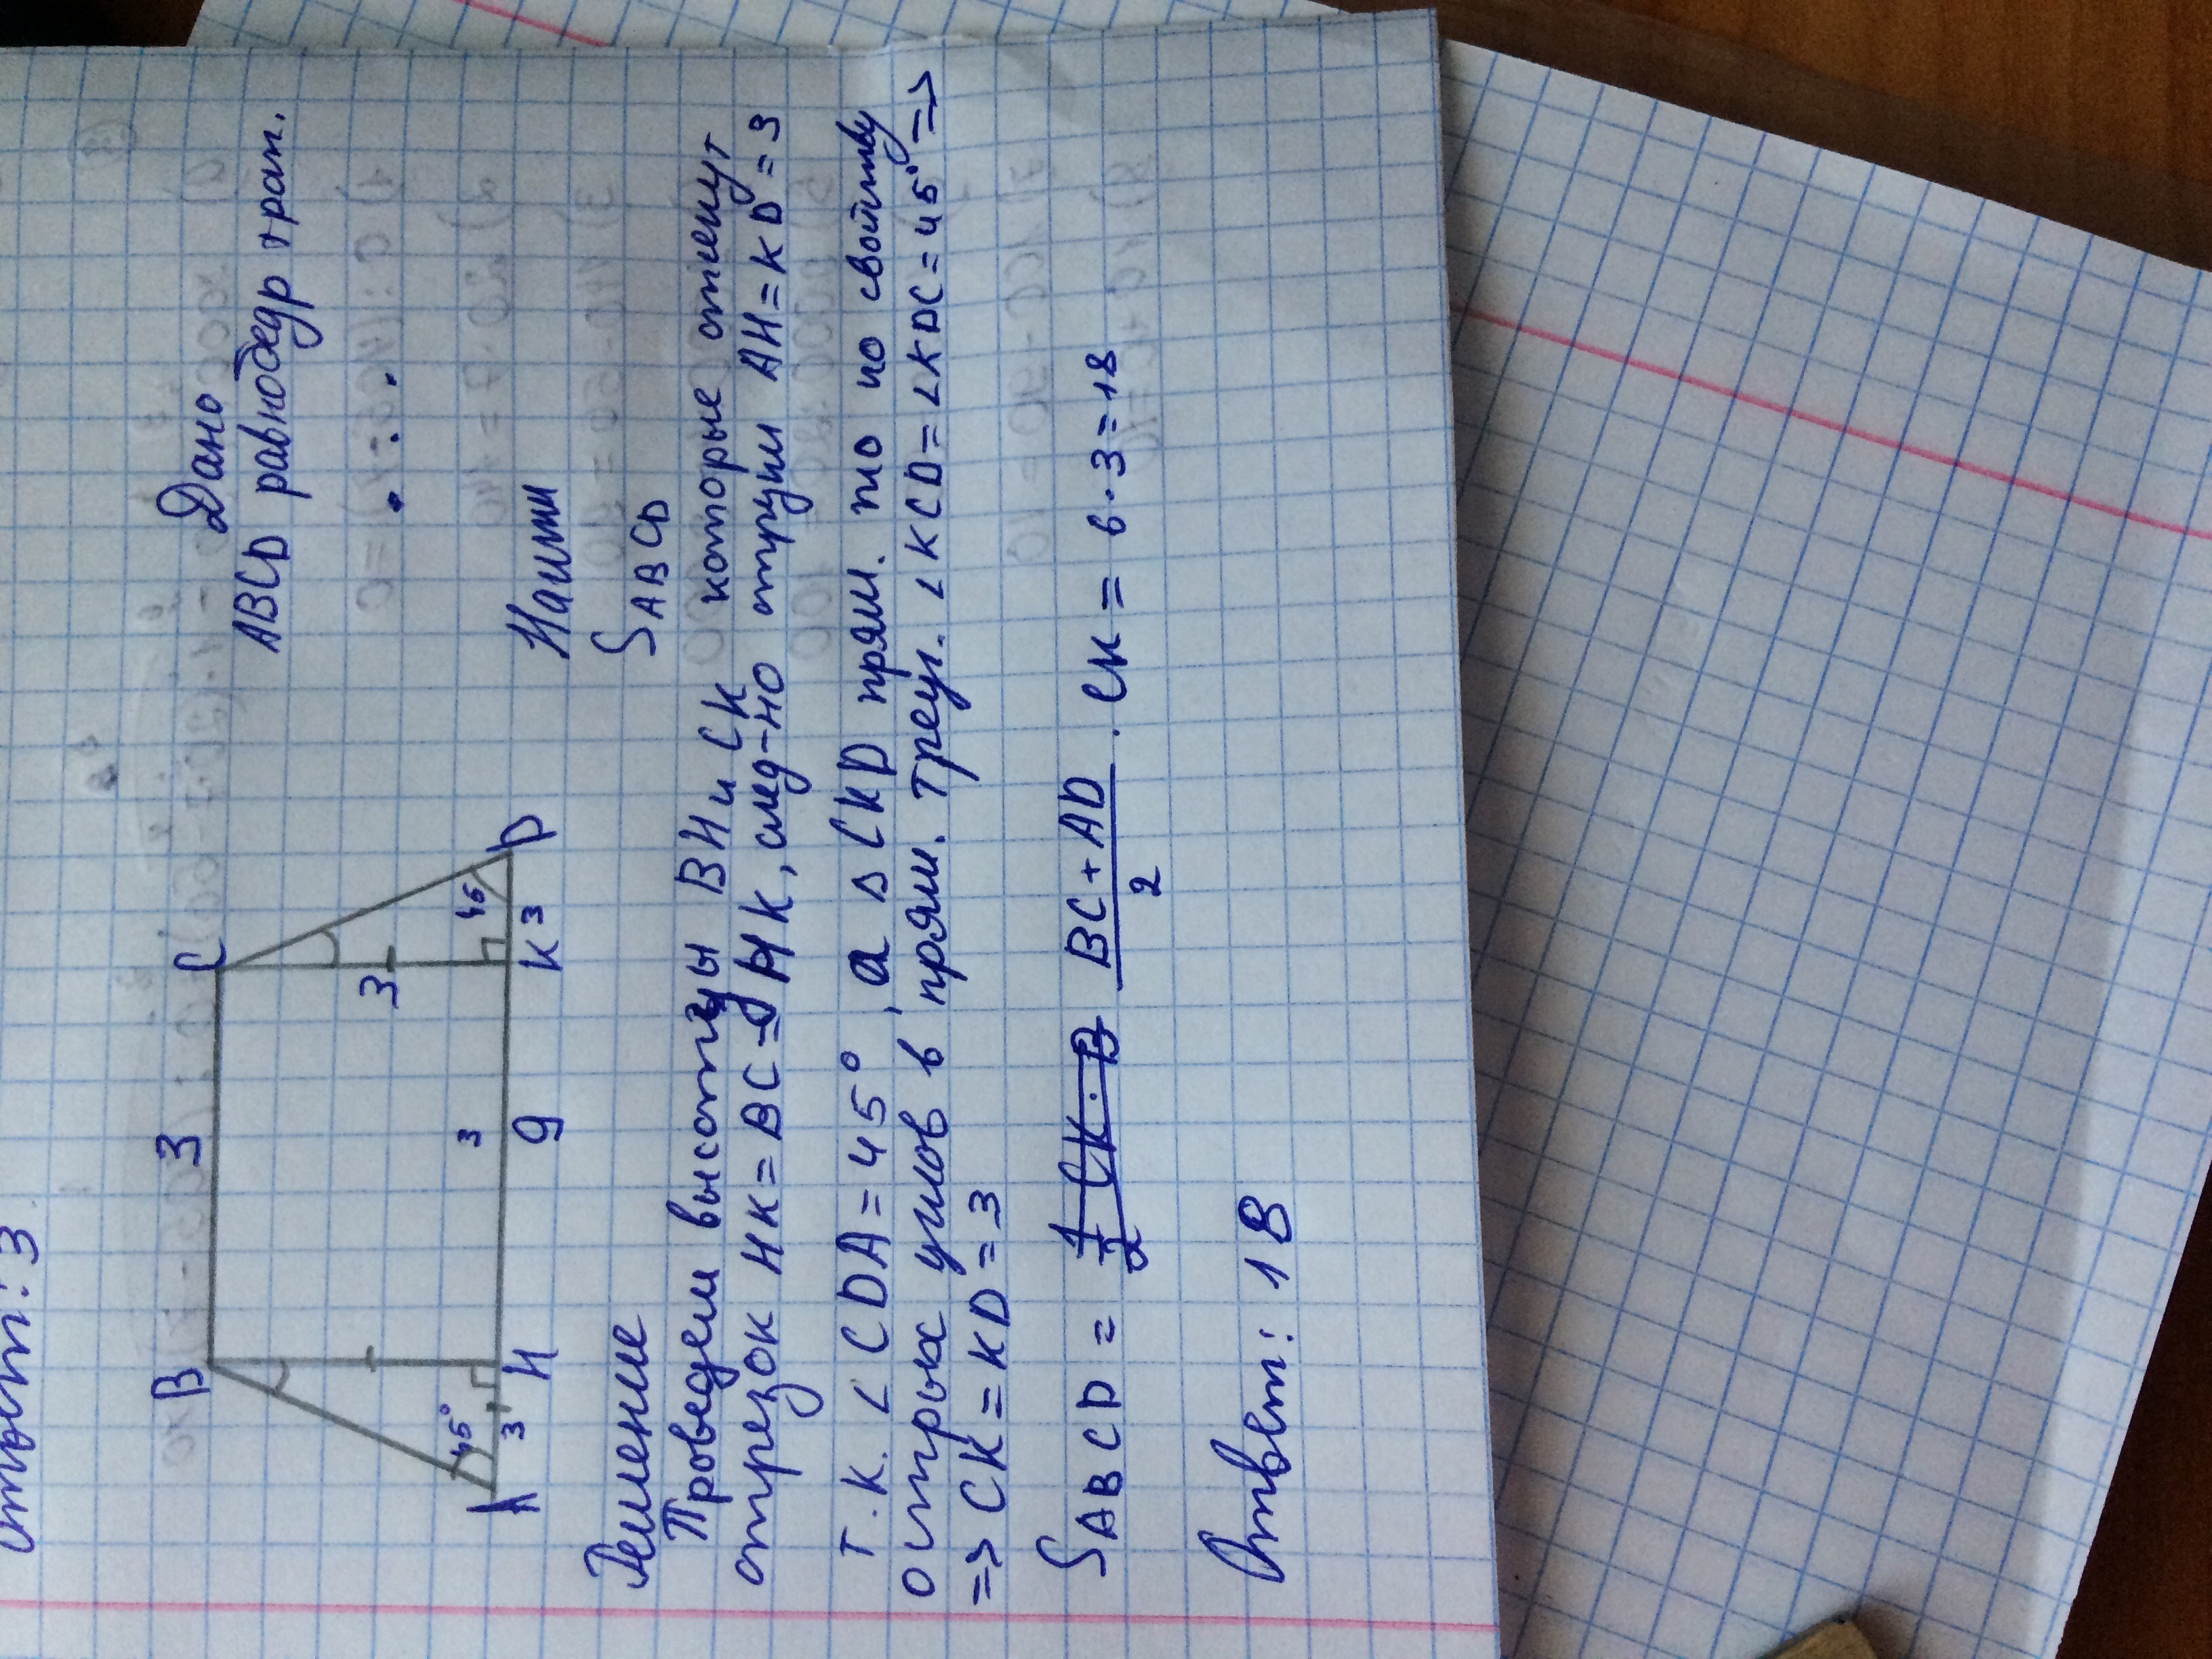 Ответ: 3
Дано
ABCD равнобедр трап.
Найти
S ABCD
B
3
C
3
45°
3
45
A
3
H
9
K
3
D
Решение
Проведем высоты BH и CK которые отсекут
отрезок HK = BC = HK, след-но отрезки AH = KD = 3
т.к. ∠CDA = 45°, а ΔCKD прям. то по свойтву
острых углов в прям. треуг. ∠KCD = ∠KDC = 45° =>
=> CK = KD = 3
S ABCD = 1/2 CK · B (BC + AD)/2 · CK = 6 · 3 = 18
Ответ: 18